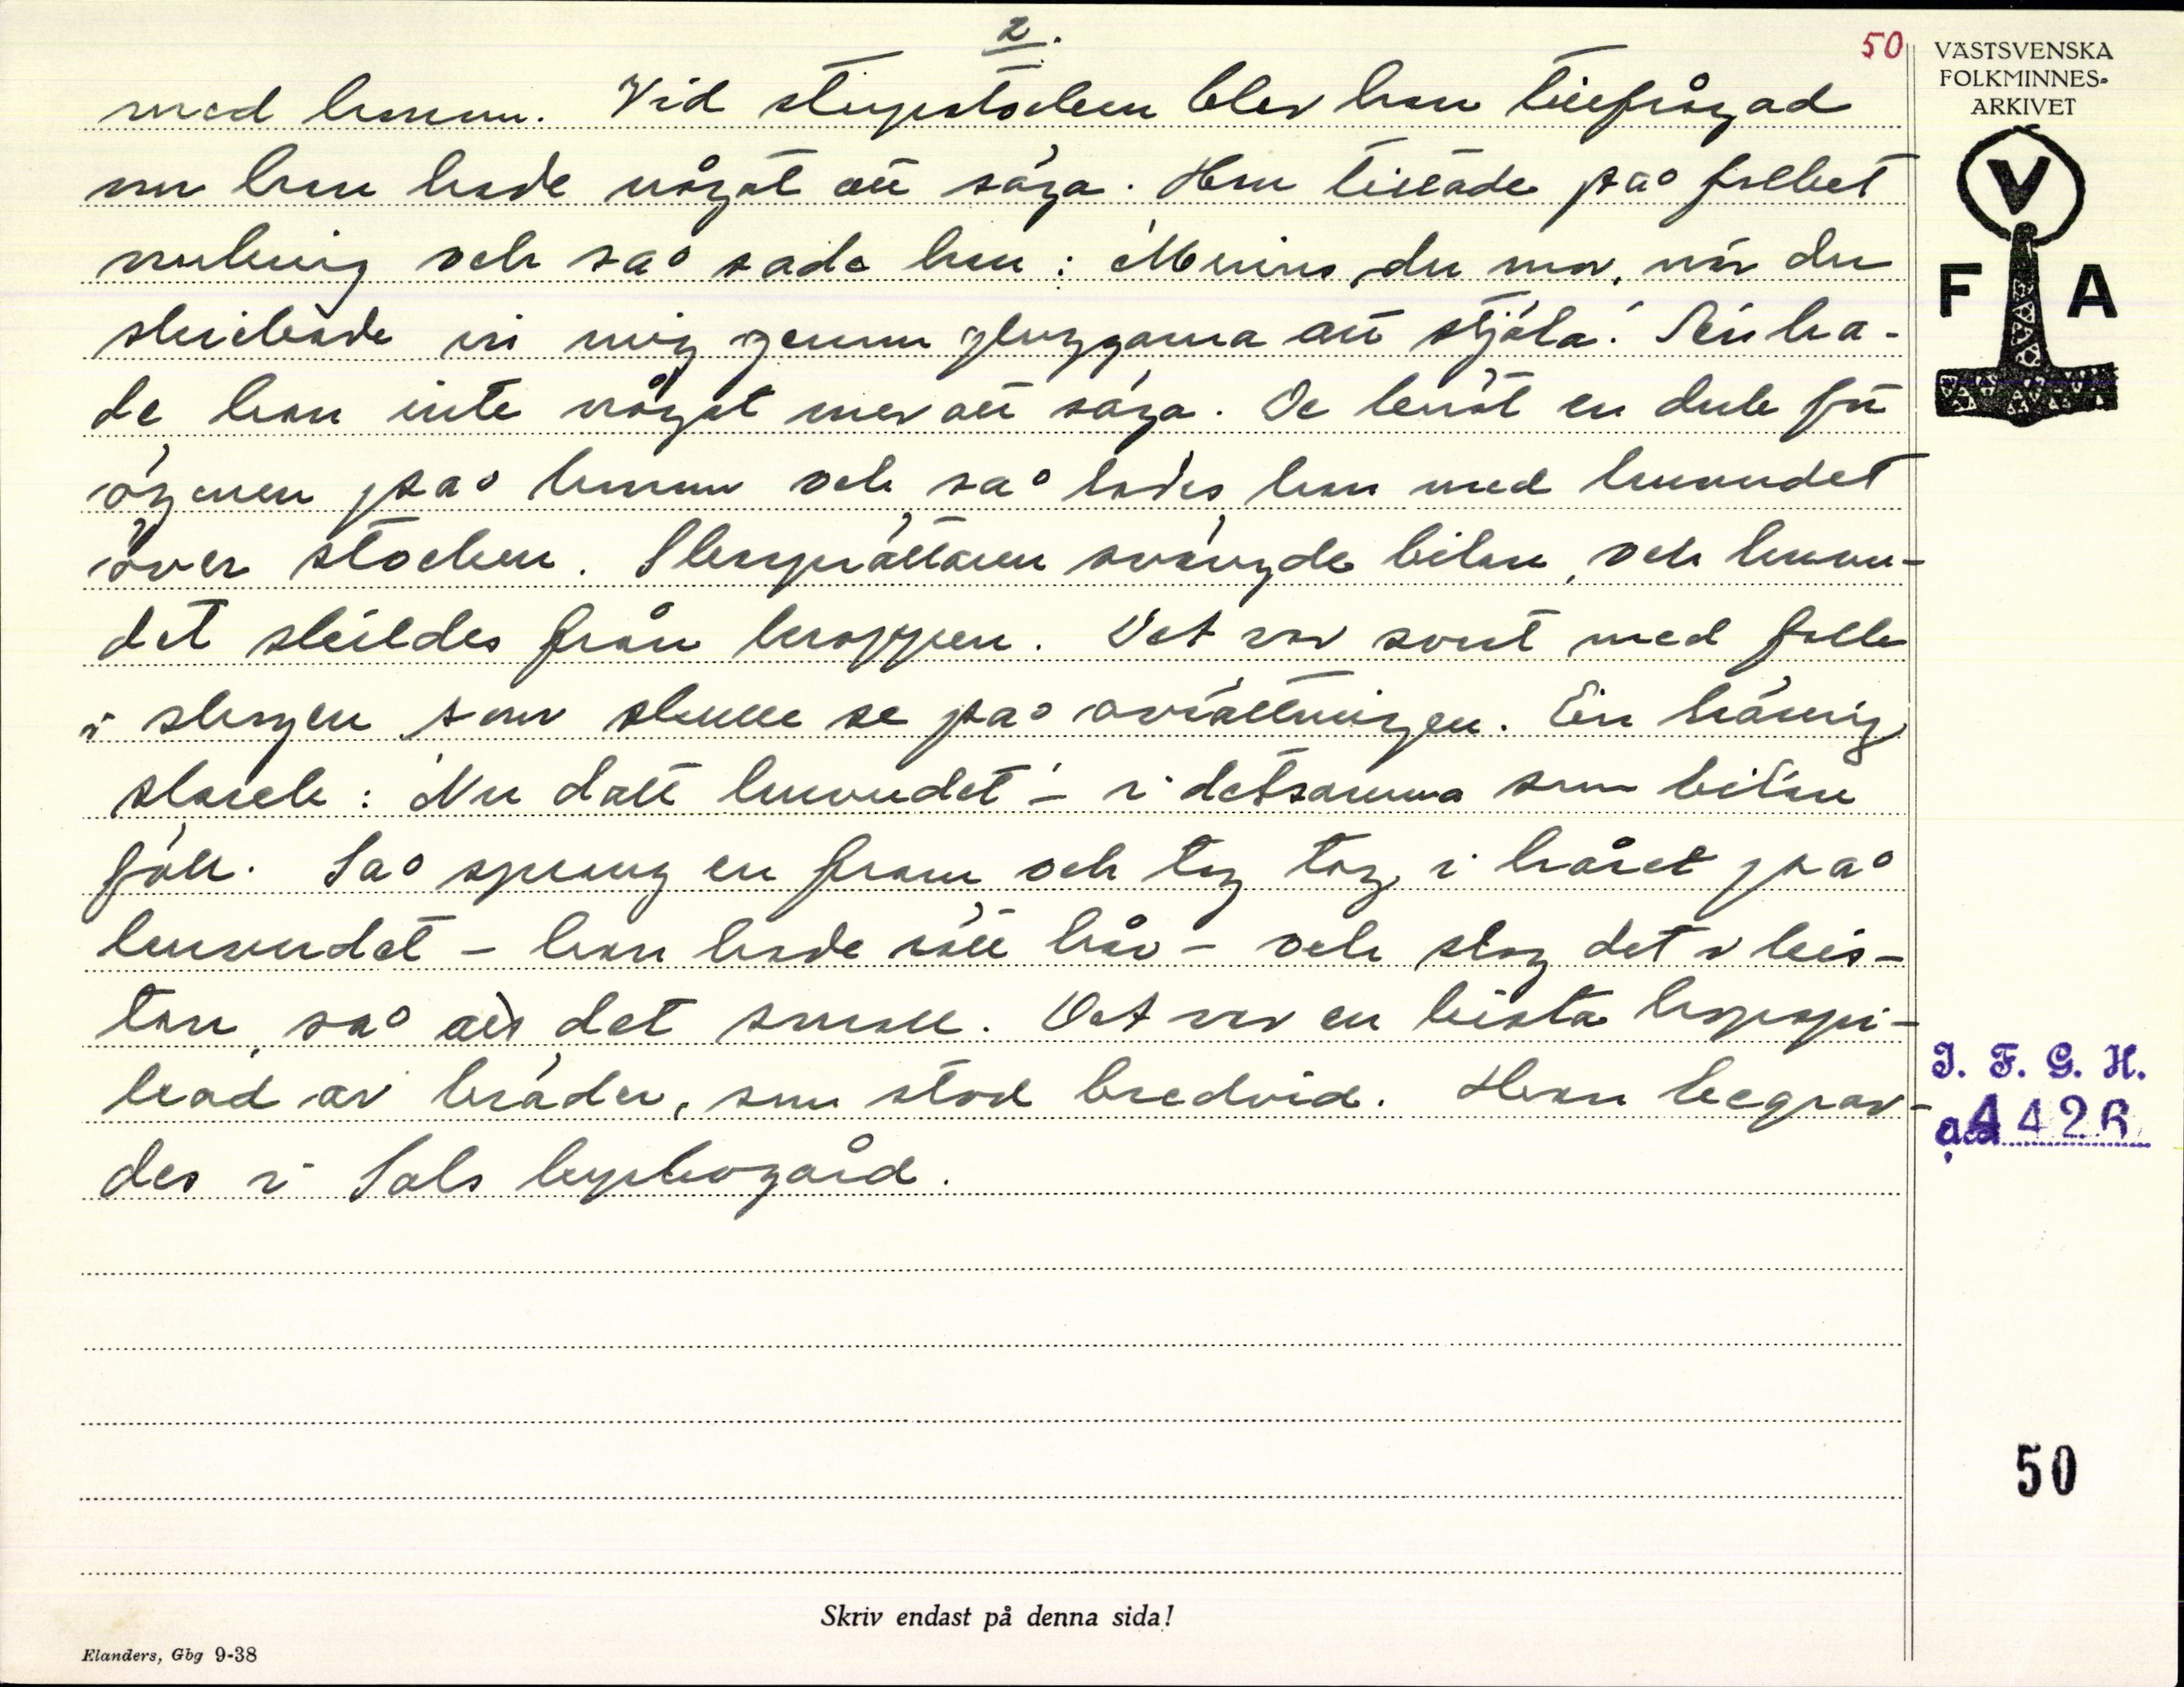 2.
50
med honom. Vid stupstocken blev han tillfrågad
om han hade något att säga. Han tittade på folket
omkring och så sade han: "Minns du mor, när du
skickade in mig genom gluggarna att stjäla." Sen ha-
de han inte något mer att säga. De knöt en duk för
ögonen på honom och så lades han med huvudet
över stocken. Skarprättaren svängde bilan, och huvu-
det skildes från kroppen. Det var svart med folk
i skogen som skulle se på avrättningen. En käring
skrek: "Nu datt huvudet" – i detsamma som bilan
föll. Så sprang en fram och tog tag i håret på
huvudet – han hade rött hår – och slog det i kis-
tan, så att det small. Det var en kista hopspi-
kad av bräder, som stod bredvid. Han begrav-
des i Sals kyrkogård.
VÄSTSVENSKA
FOLKMINNES-
ARKIVET
V
F A
I. F. G. H.
4426
50
Skriv endast på denna sida!
Elanders, Gbg 9-38